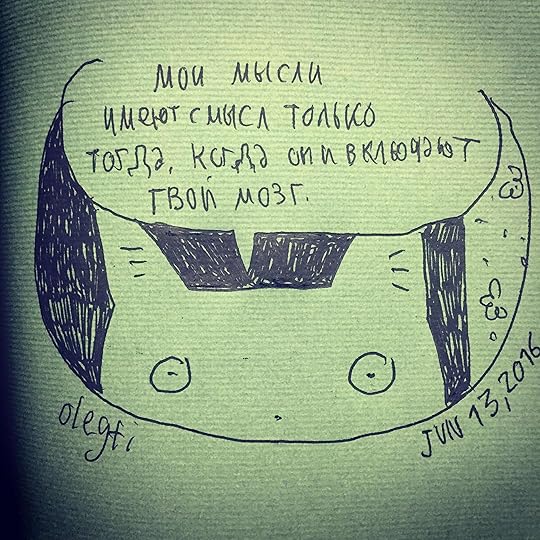 мои мысли
имеют смысл только
тогда, когда они включают
твой мозг.
olegti
JUN 13, 2016